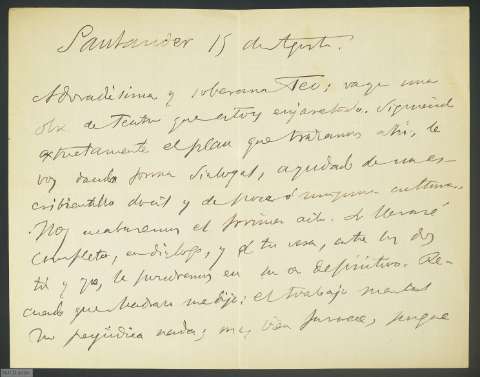 Santander 15 de Agosto.
Adoradísima y soberana Teo: vaya una
obra de teatro que estoy enjaretando. Siguiendo
estrictamente el plan que trazamos ahí, le
voy dando forma dialogal, ayudado de un es-
cribientillo dócil y de poca ó ninguna cultura.
Hoy acabaremos el primer acto. Lo llevaré
completo, en diálogo, y en tu casa, entre los dos
tú y yo, le pondremos en su ser definitivo. Re-
cuerdo que Madrazo me dijo: el trabajo mental
no perjudica nada; más bien favorece, porque